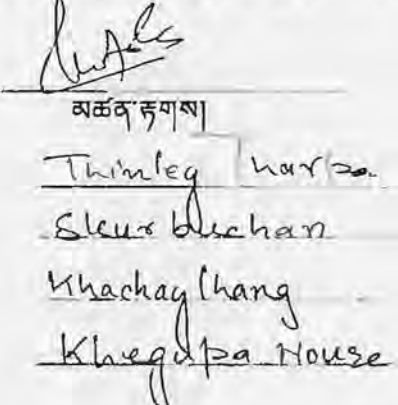 མཚན་རྟགས།
Thinley
Skurbuchan
Khachay Chang
Khegapa House